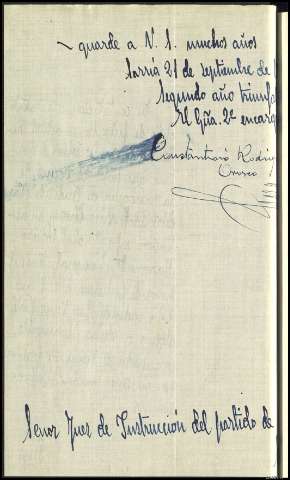 guarde a V. S. muchos años
Sarriá 21 de septiembre de
Segundo año triunf
El Gña. 2º encarg
Constantino Rodríg
Orosco
Señor Juez de Instrucción del partido de